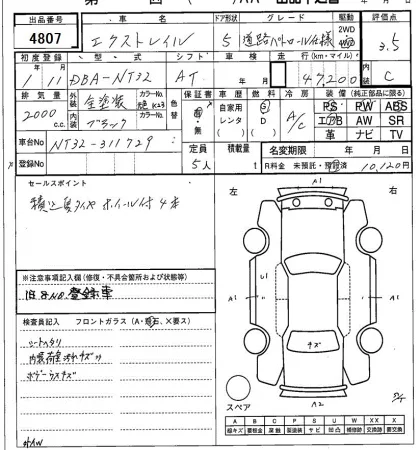 出品番号 車名 ドア形状 グレード 駆動 評価点
4807 エクストレイル 5 道路パトロール仕様 2WD 3.5
初度登録 型・式 シフト 走行(km・マイル) 内装
1/11 DBA-NT32 AT 47,200 C
排気量 外装 カラーNo. 色替 保証書 車歴 燃料 冷房 装備(純正部品に限る)
2000 c.c. 全塗装 K23 有・無 自家用 G A/C PS PW ABS
内装 カラーNo. レンタ D エアB AW SR
ブラック 革 ナビ TV
車台No. NT32-311729 定員 積載量 名変期限 年 月 日
登録No. 5人 t R料金 未預託・預託済 10,120円
セールスポイント
積込夏タイヤ ホイール付 4本
※注意事項記入欄(修復・不具合箇所および状態等)
旧8No.登録車
検査員記入 フロントガラス(A・飛石、X要ス)
シートヘタリ
内装荷室汚れキズ
ボデーうすキズ
左 右
A1
U1
A1 A1
キズ
A2
スペア
A B C P S U W X XX
線キズ 要板金 腐蝕 要塗装 サビ 凹凸 補修跡 要交換 交換済